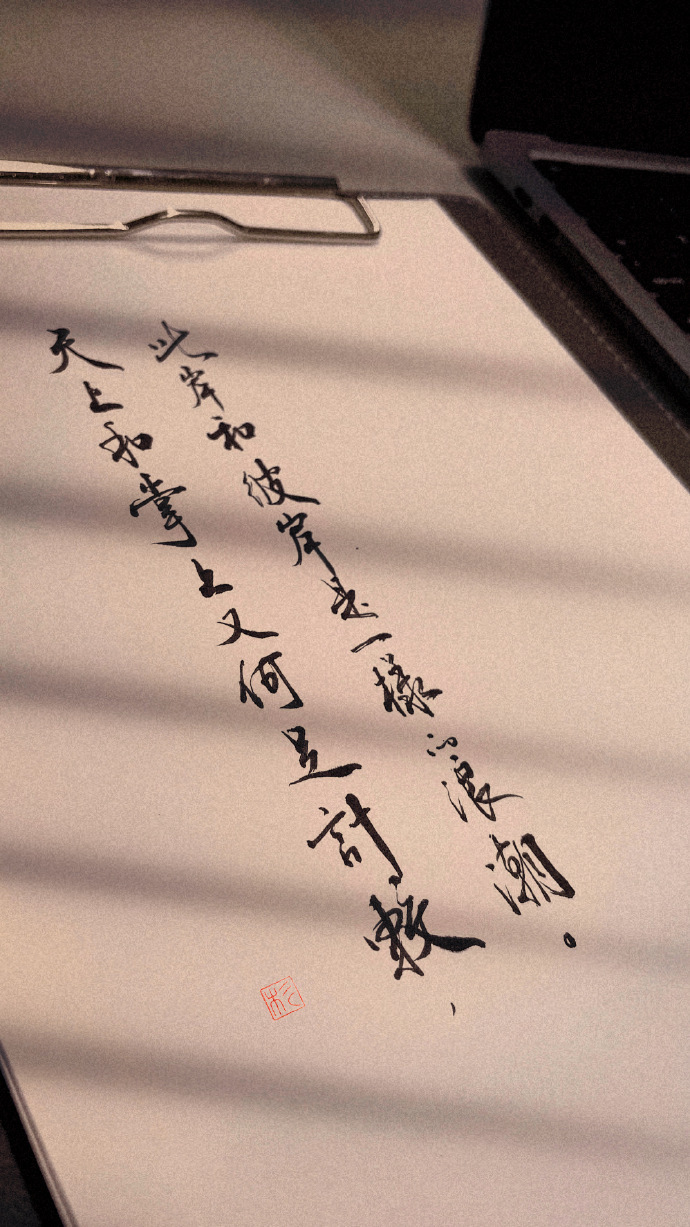 天上和掌上又何足計數，
此岸和彼岸是一樣的浪潮。
杉